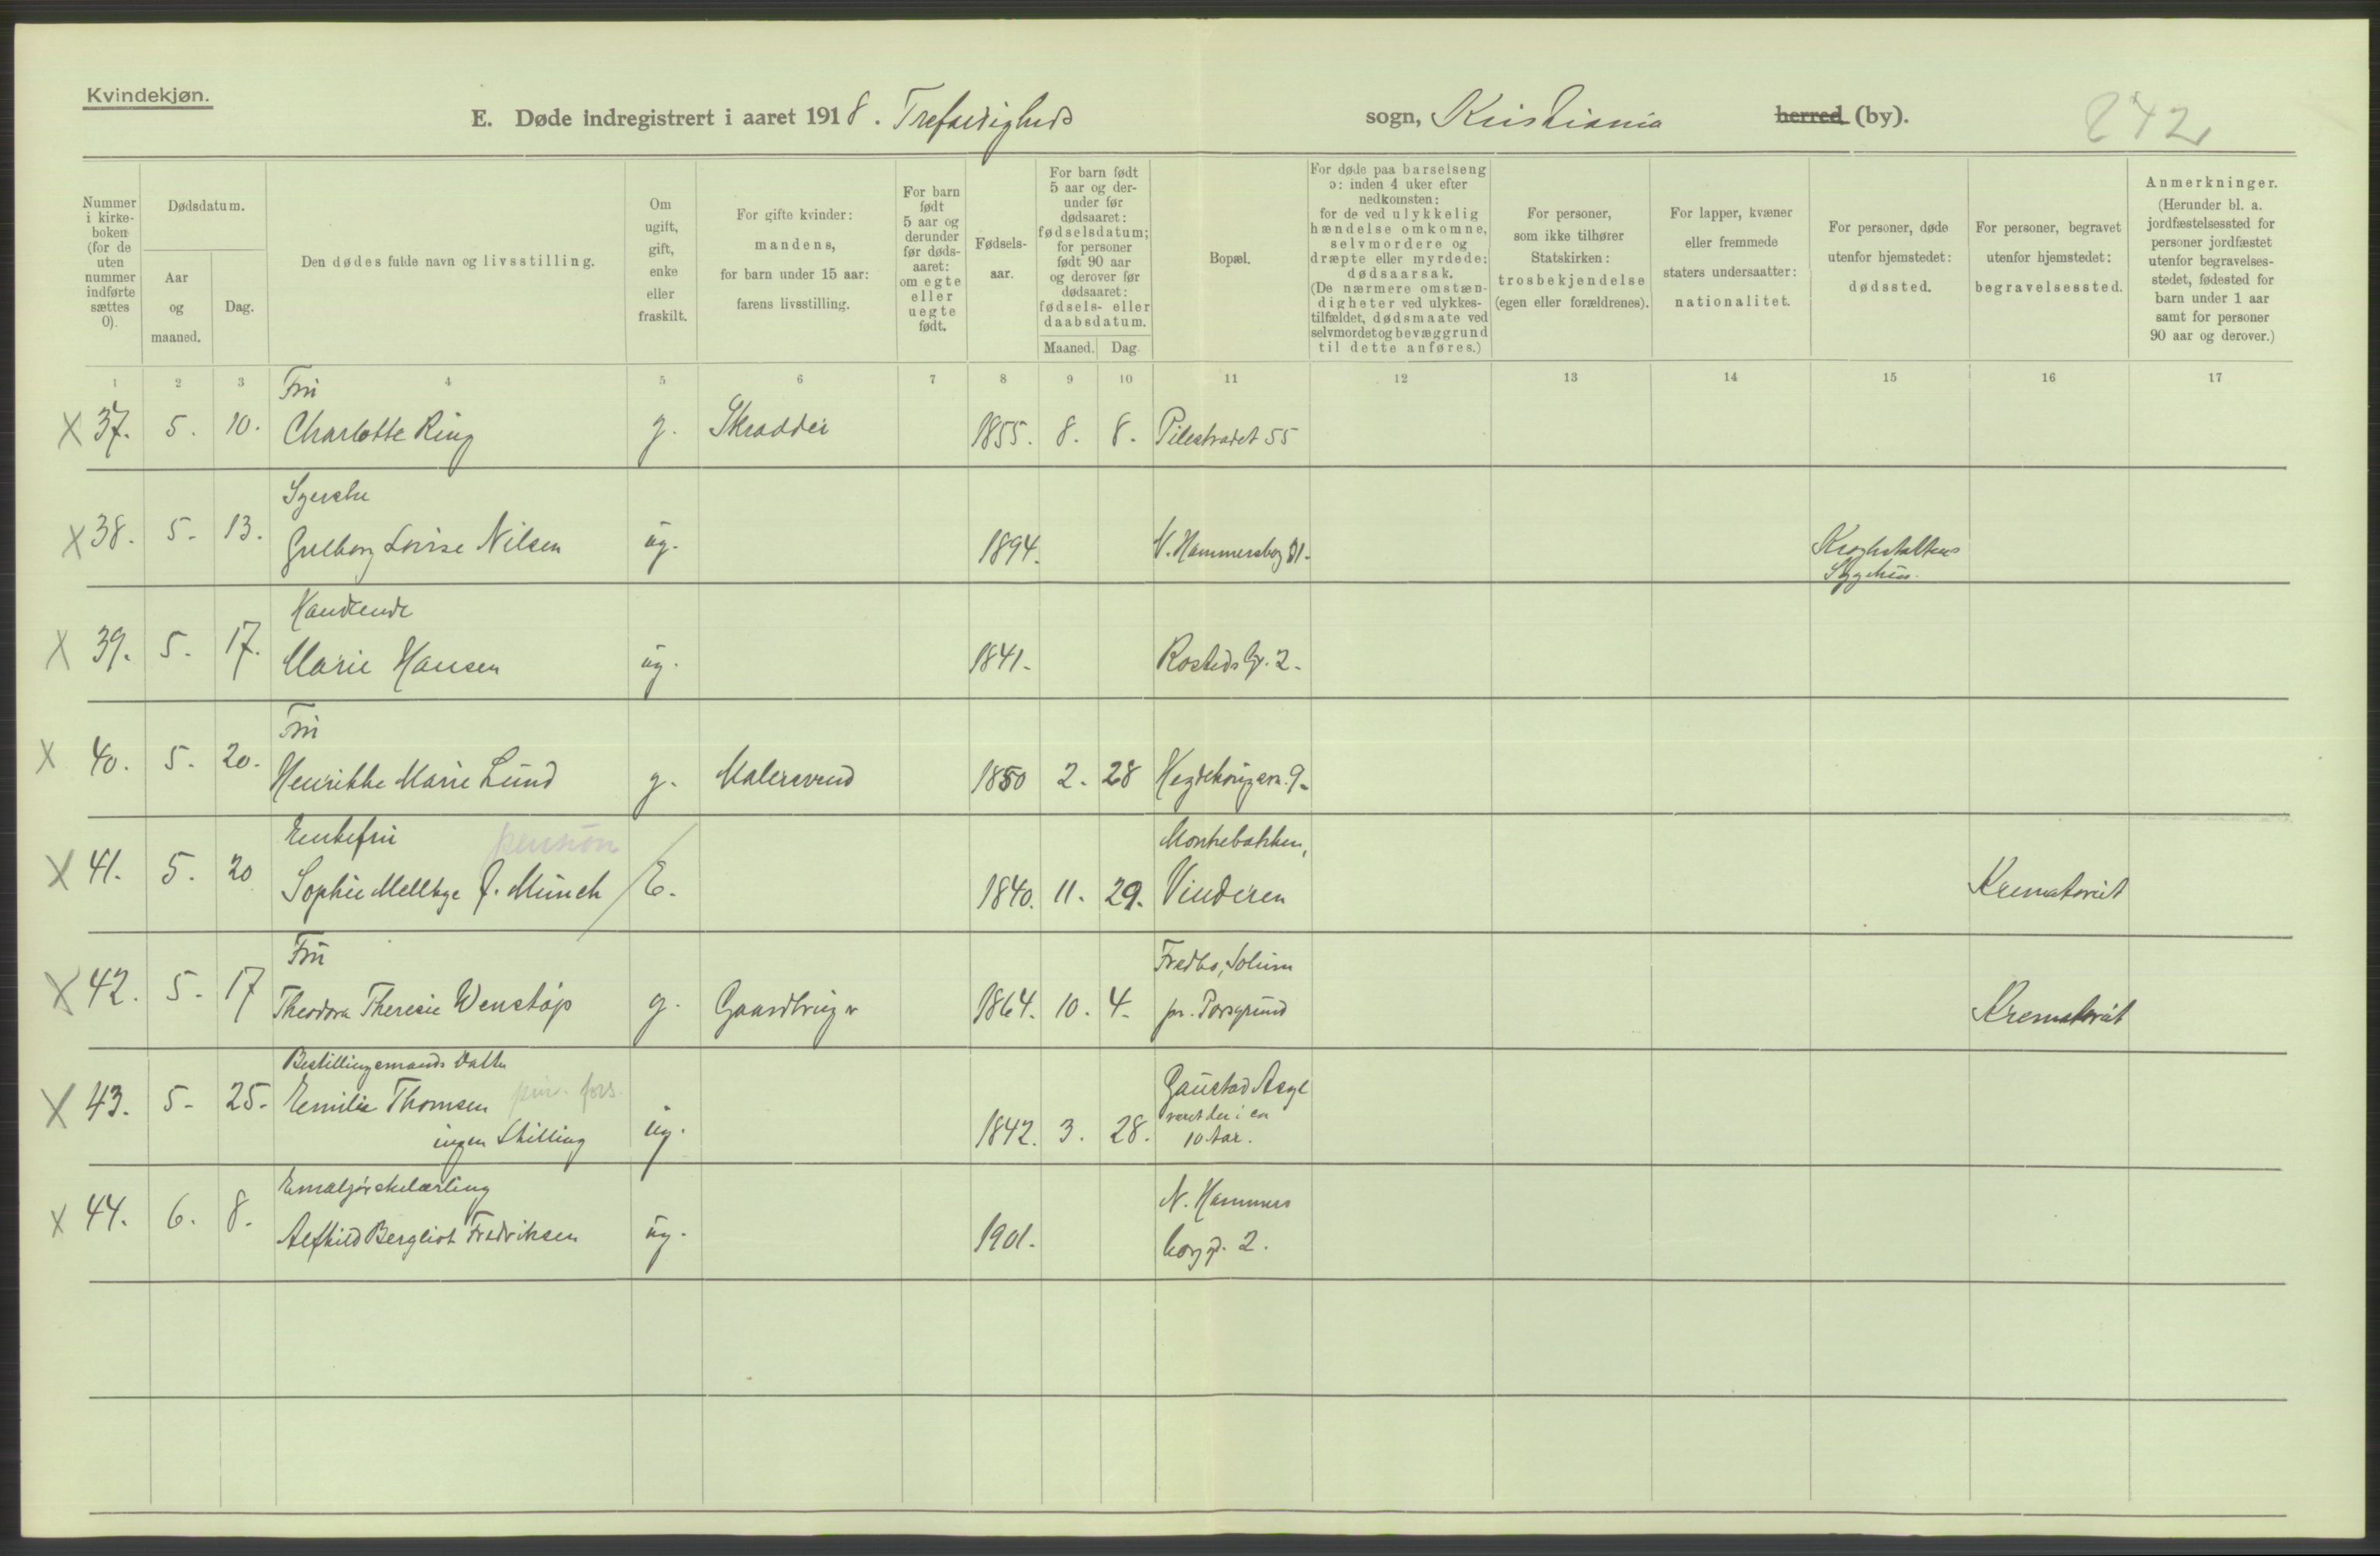 Kvindekjøn.
E. Døde indregistrert i aaret 1918. Trefoldigheds sogn, Kristiania herred (by).
242
Nummer i kirke-boken (for de uten nummer indførte sættes 0).
Dødsdatum.
Aar og maaned.
Dag.
Den dødes fulde navn og livsstilling.
Om ugift, gift, enke eller fraskilt.
For gifte kvinder: mandens, for barn under 15 aar: farens livsstilling.
For barn født 5 aar og derunder før døds-aaret: om egte eller uegte født.
Fødsels-aar.
For barn født 5 aar og der-under før dødsaaret: fødselsdatum; for personer født 90 aar og derover før dødsaaret: fødsels- eller daabsdatum.
Maaned. Dag.
Bopæl.
For døde paa barselseng ɔ: inden 4 uker efter nedkomsten: for de ved ulykkelig hændelse omkomne, selvmordere og dræpte eller myrdede: dødsaarsak. (De nærmere omstæn-digheter ved ulykkes-tilfældet, dødsmaate ved selvmordet og bevæggrund til dette anføres.)
For personer, som ikke tilhører Statskirken: trosbekjendelse (egen eller forældrenes).
For lapper, kvæner eller fremmede staters undersaatter: nationalitet.
For personer, døde utenfor hjemstedet: dødssted.
For personer, begravet utenfor hjemstedet: begravelsessted.
Anmerkninger. (Herunder bl. a. jordfæstelsessted for personer jordfæstet utenfor begravelses-stedet, fødested for barn under 1 aar samt for personer 90 aar og derover.)
1 2 3 4 5 6 7 8 9 10 11 12 13 14 15 16 17
Fru
X 37. 5. 10. Charlotte Ring g. Skrædder 1855. 8. 8. Pilestrædet 55
Syerske
X 38. 5. 13. Gulborg Lovise Nilsen ug. 1894. V. Hammersborg 21. Kroghstøttens
Sygehus.
Handlende
X 39. 5. 17. Marie Hansen ug. 1841. Rosteds G. 2.
Fru
X 40. 5. 20. Henrikke Marie Lund g. Malersvend 1850 2. 28 Hegdehaugsvn. 9.
Enkefru pension Monkebakken,
X 41. 5. 20 Sophie Mellbye f. Münch E. 1840. 11. 29. Vinderen Krematoriet
Fru Fredbo, Solum
X 42. 5. 17 Theodora Theresie Wenstøp g. Gaardbruger 1864. 10. 4. pr. Porsgrund Krematoriet
Bestillingsmands Datter Gaustad Asyl
X 43. 5. 25. Emilie Thomsen priv. fors. været der i ca
ingen Stilling ug. 1842. 3. 28. 10 Aar.
Emaljørskelærling N. Hammers
X 44. 6. 8. Alfhild Bergliot Fredriksen ug. 1901. borg. 2.